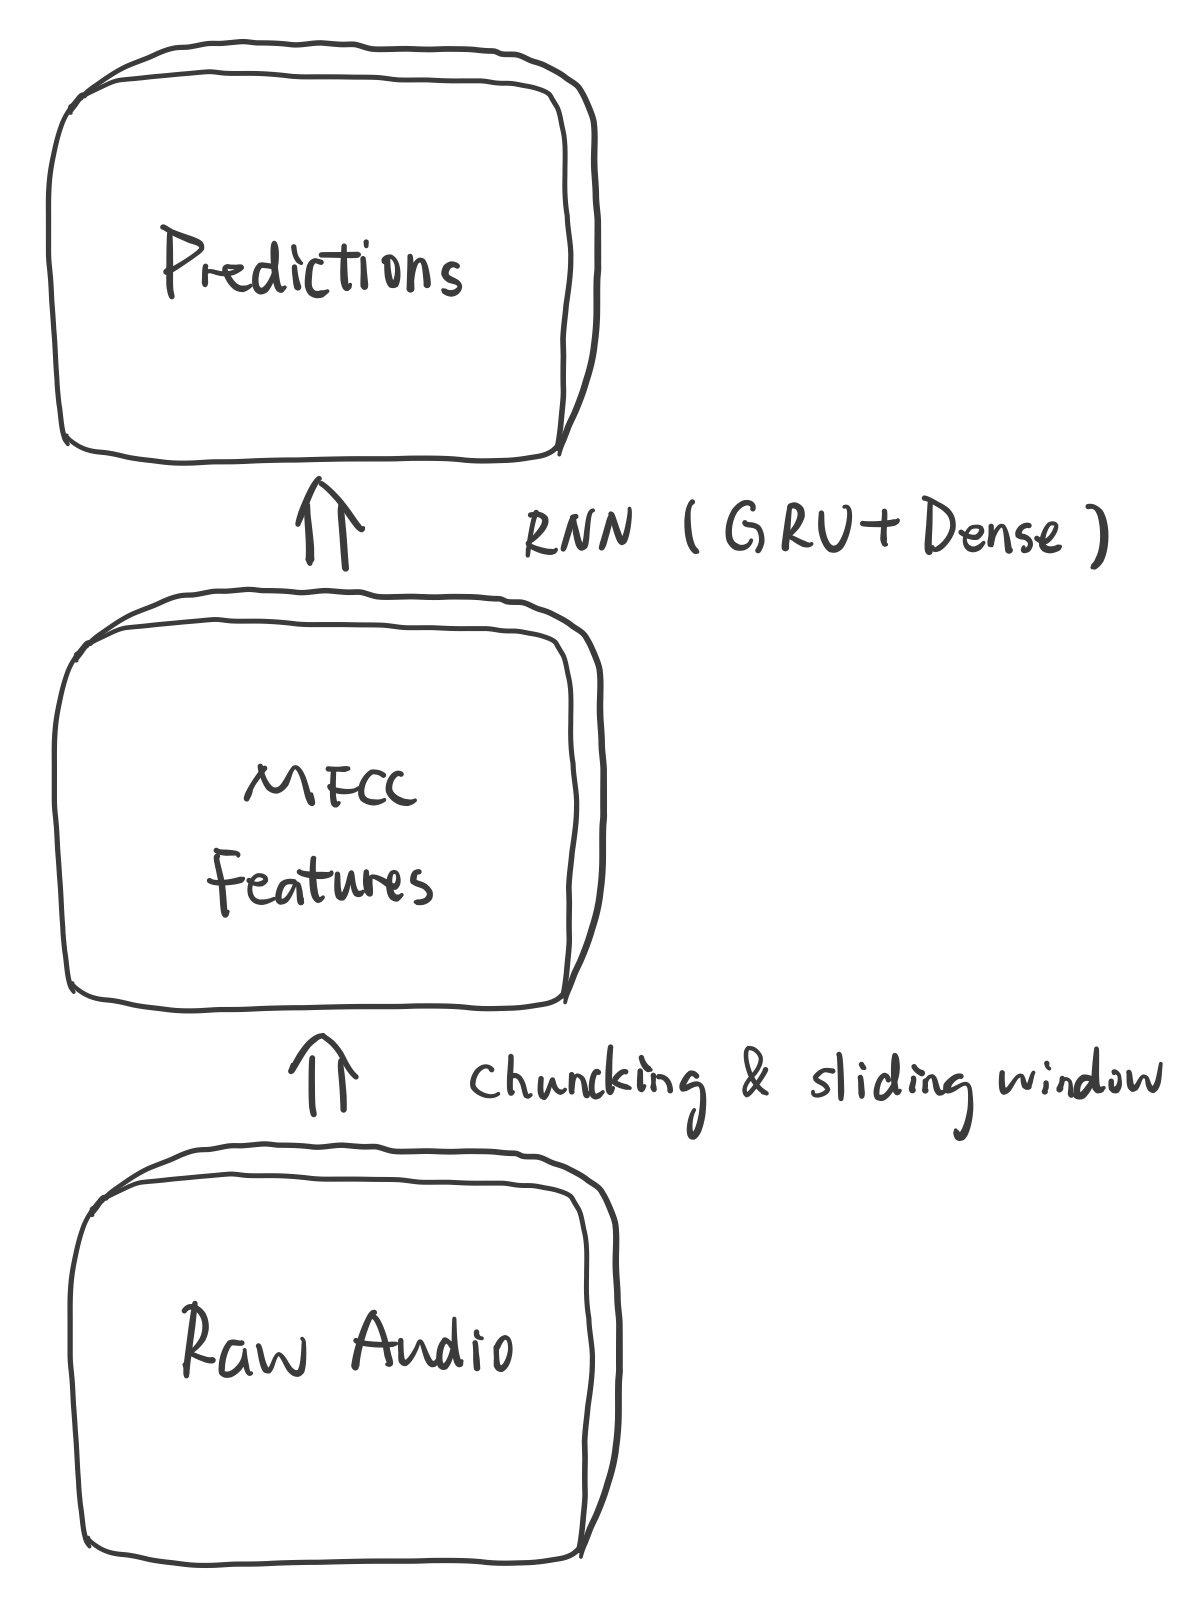 Predictions
RNN (GRU+Dense)
MFCC
Features
Chuncking & sliding window
Raw Audio